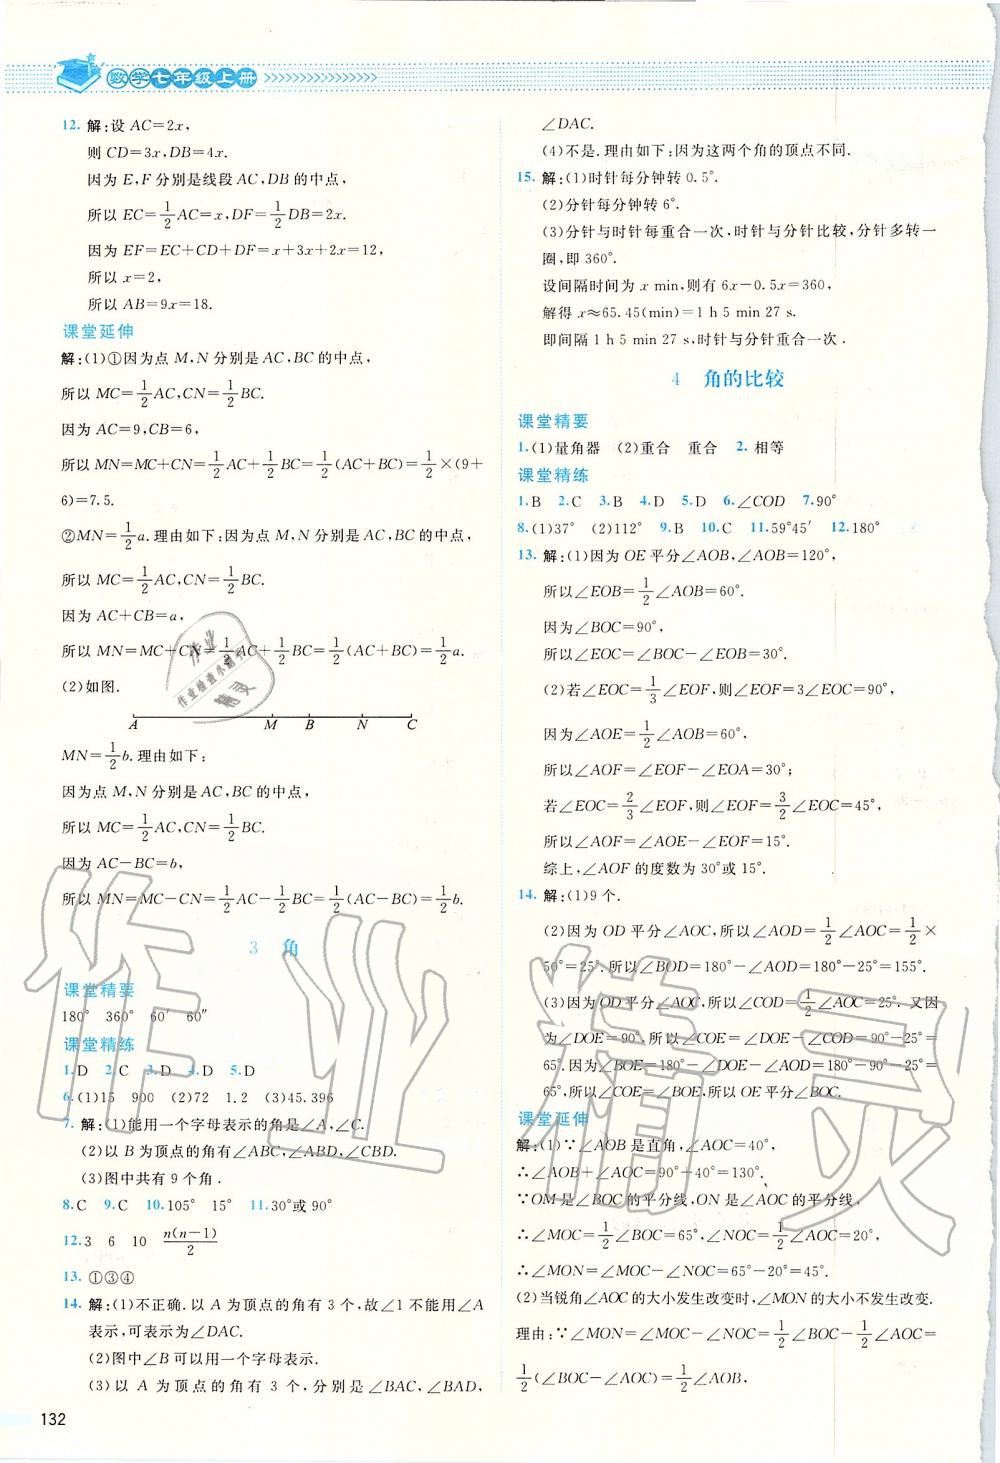 数学七年级上册
12. 解:设 AC=2x,
则 CD=3x,DB=4x.
因为 E,F 分别是线段 AC,DB 的中点,
所以 EC=1/2AC=x,DF=1/2DB=2x.
因为 EF=EC+CD+DF=x+3x+2x=12,
所以 x=2,
所以 AB=9x=18.
课堂延伸
解:(1)①因为点 M,N 分别是 AC,BC 的中点,
所以 MC=1/2AC,CN=1/2BC.
因为 AC=9,CB=6,
所以 MN=MC+CN=1/2AC+1/2BC=1/2(AC+BC)=1/2×(9+
6)=7.5.
②MN=1/2a.理由如下:因为点 M,N 分别是 AC,BC 的中点,
所以 MC=1/2AC,CN=1/2BC.
因为 AC+CB=a,
所以 MN=MC+CN=1/2AC+1/2BC=1/2(AC+BC)=1/2a.
(2)如图.
A M B N C
MN=1/2b.理由如下:
因为点 M,N 分别是 AC,BC 的中点,
所以 MC=1/2AC,CN=1/2BC.
因为 AC-BC=b,
所以 MN=MC-CN=1/2AC-1/2BC=1/2(AC-BC)=1/2b.
3 角
课堂精要
180° 360° 60′ 60″
课堂精练
1.D 2.C 3.D 4.D 5.D
6.(1)15 900 (2)72 1.2 (3)45.396
7. 解:(1)能用一个字母表示的角是∠A,∠C.
(2)以 B 为顶点的角有∠ABC,∠ABD,∠CBD.
(3)图中共有 9 个角.
8.C 9.C 10.105° 15° 11.30°或 90°
12.3 6 10 n(n-1)/2
13. ①③④
14. 解:(1)不正确.以 A 为顶点的角有 3 个,故∠1 不能用∠A
表示,可表示为∠DAC.
(2)图中∠B 可以用一个字母表示.
(3)以 A 为顶点的角有 3 个,分别是∠BAC,∠BAD,
132
∠DAC.
(4)不是.理由如下:因为这两个角的顶点不同.
15. 解:(1)时针每分钟转 0.5°.
(2)分针每分钟转 6°.
(3)分针与时针每重合一次,时针与分针比较,分针多转一
圈,即 360°.
设间隔时间为 x min,则有 6x-0.5x=360,
解得 x≈65.45(min)=1 h 5 min 27 s.
即间隔 1 h 5 min 27 s,时针与分针重合一次.
4 角的比较
课堂精要
1.(1)量角器 (2)重合 重合 2. 相等
课堂精练
1.B 2.C 3.B 4.D 5.D 6.∠COD 7.90°
8.(1)37° (2)112° 9.B 10.C 11.59°45′ 12.180°
13. 解:(1)因为 OE 平分∠AOB,∠AOB=120°,
所以∠EOB=1/2∠AOB=60°.
因为∠BOC=90°,
所以∠EOC=∠BOC-∠EOB=30°.
(2)若∠EOC=1/3∠EOF,则∠EOF=3∠EOC=90°,
因为∠AOE=1/2∠AOB=60°,
所以∠AOF=∠EOF-∠EOA=30°;
若∠EOC=2/3∠EOF,则∠EOF=3/2∠EOC=45°,
所以∠AOF=∠AOE-∠EOF=15°.
综上,∠AOF 的度数为 30°或 15°.
14. 解:(1)9 个.
(2)因为 OD 平分∠AOC,所以∠AOD=1/2∠AOC=1/2×
50°=25°.所以∠BOD=180°-∠AOD=180°-25°=155°.
(3)因为 OD 平分∠AOC,所以∠COD=1/2∠AOC=25°.又因
为∠DOE=90°,所以∠COE=∠DOE-∠COD=90°-25°=
65°.因为∠BOE=180°-∠DOE-∠AOD=180°-90°-25°=
65°,所以∠COE=∠BOE,所以 OE 平分∠BOC.
课堂延伸
解:(1)∵∠AOB 是直角,∠AOC=40°,
∴∠AOB+∠AOC=90°+40°=130°.
∵OM 是∠BOC 的平分线,ON 是∠AOC 的平分线,
∴∠MOC=1/2∠BOC=65°,∠NOC=1/2∠AOC=20°,
∴∠MON=∠MOC-∠NOC=65°-20°=45°.
(2)当锐角∠AOC 的大小发生改变时,∠MON 的大小不发生改变.
理由:∵∠MON=∠MOC-∠NOC=1/2∠BOC-1/2∠AOC=
1/2(∠BOC-∠AOC)=1/2∠AOB,
作业精灵
作业
作业检查小助手
精灵